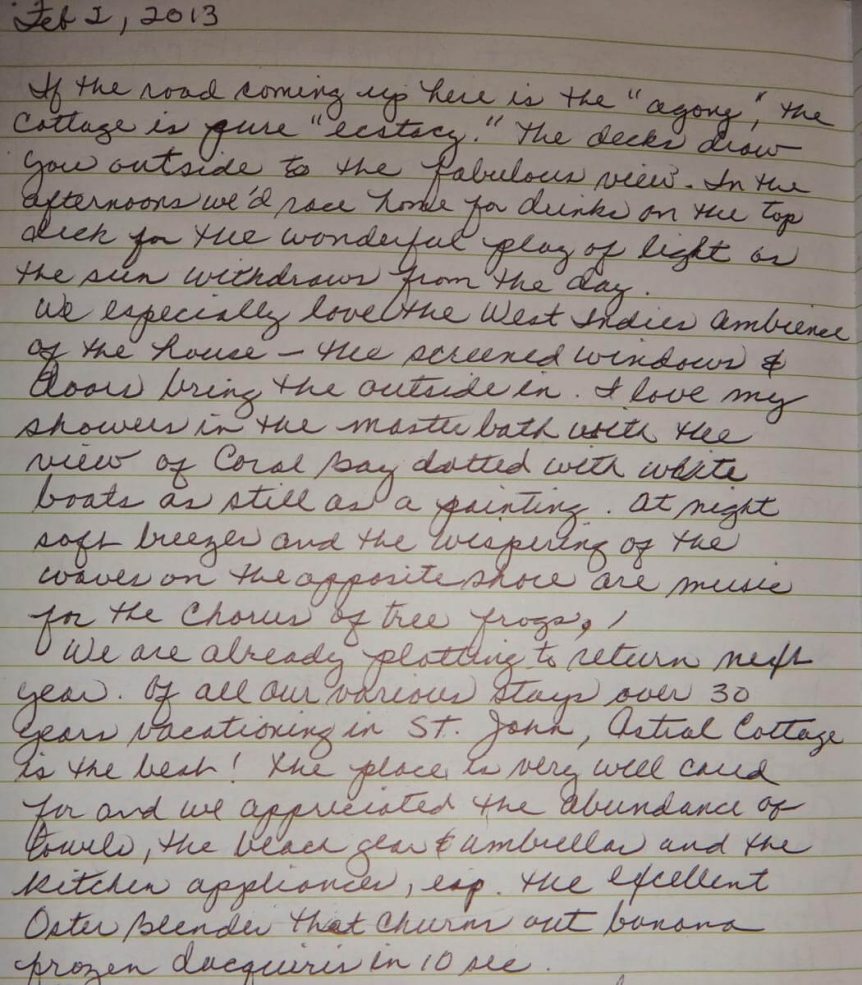 Feb 2, 2013
If the road coming up here is the "agony", the
Cottage is pure "ecstacy." The decks draw
you outside to the fabulous view. In the
afternoons we'd race home for drinks on the top
deck for the wonderful play of light as
the sun withdraws from the day.
We especially love the West Indies ambience
of the house – the screened windows &
doors bring the outside in. I love my
showers in the master bath with the
view of Coral Bay dotted with white
boats as still as a painting. At night
soft breezes and the wispering of the
waves on the opposite shore are music
for the chorus of tree frogs.
We are already plotting to return next
year. Of all our various stays over 30
years vacationing in St. John, Astral Cottage
is the best! The place is very well cared
for and we appreciated the abundance of
towels, the beach gear & umbrellas and the
kitchen appliances, esp. the excellent
Oster Blender that churns out banana
frozen dacquiris in 10 sec.